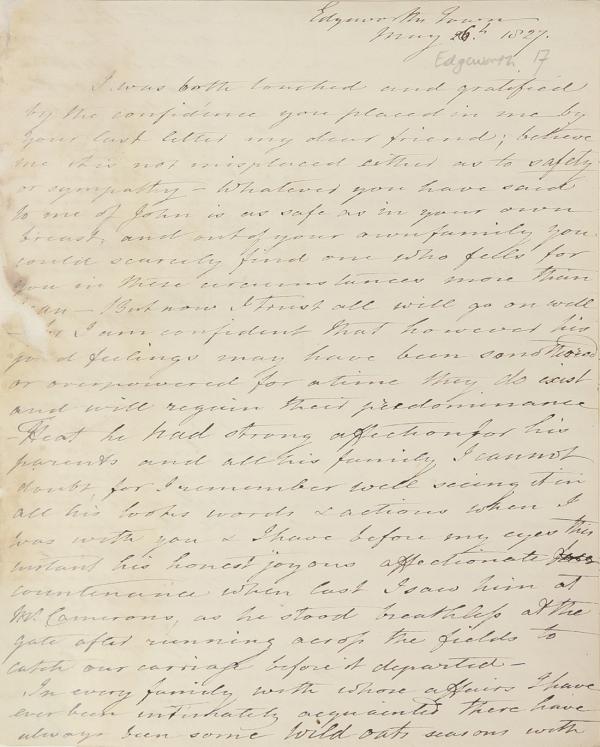 Edgeworth Town
May 26th 1827.
Edgeworth 17
I was both touched and gratified
by the confidence you placed in me by
your last letter my dear friend; believe
me it is not misplaced either as to safety
or sympathy – Whatever you have said
to me of John is as safe as in your own
breast, and out of your own family you
could scarcely find one who feels for
you in these circumstances more than
I can – But now I trust all will go on well
– for I am confident that however his
good feelings may have been
or overpowered for a time they do exist
and will regain their predominance
– That he had strong affection for his
parents and all his family I cannot
doubt, for I remember well seeing it in
all his looks words & actions when I
was with you & I have before my eyes this
instant his honest joyous affectionate
countenance when last I saw him at
Mr. Camerons, as he stood breathless at the
gate after running across the fields to
catch our carriage before it departed –
In every family with whose affairs I have
ever been intimately acquainted there have
always been some wild oats seasons with